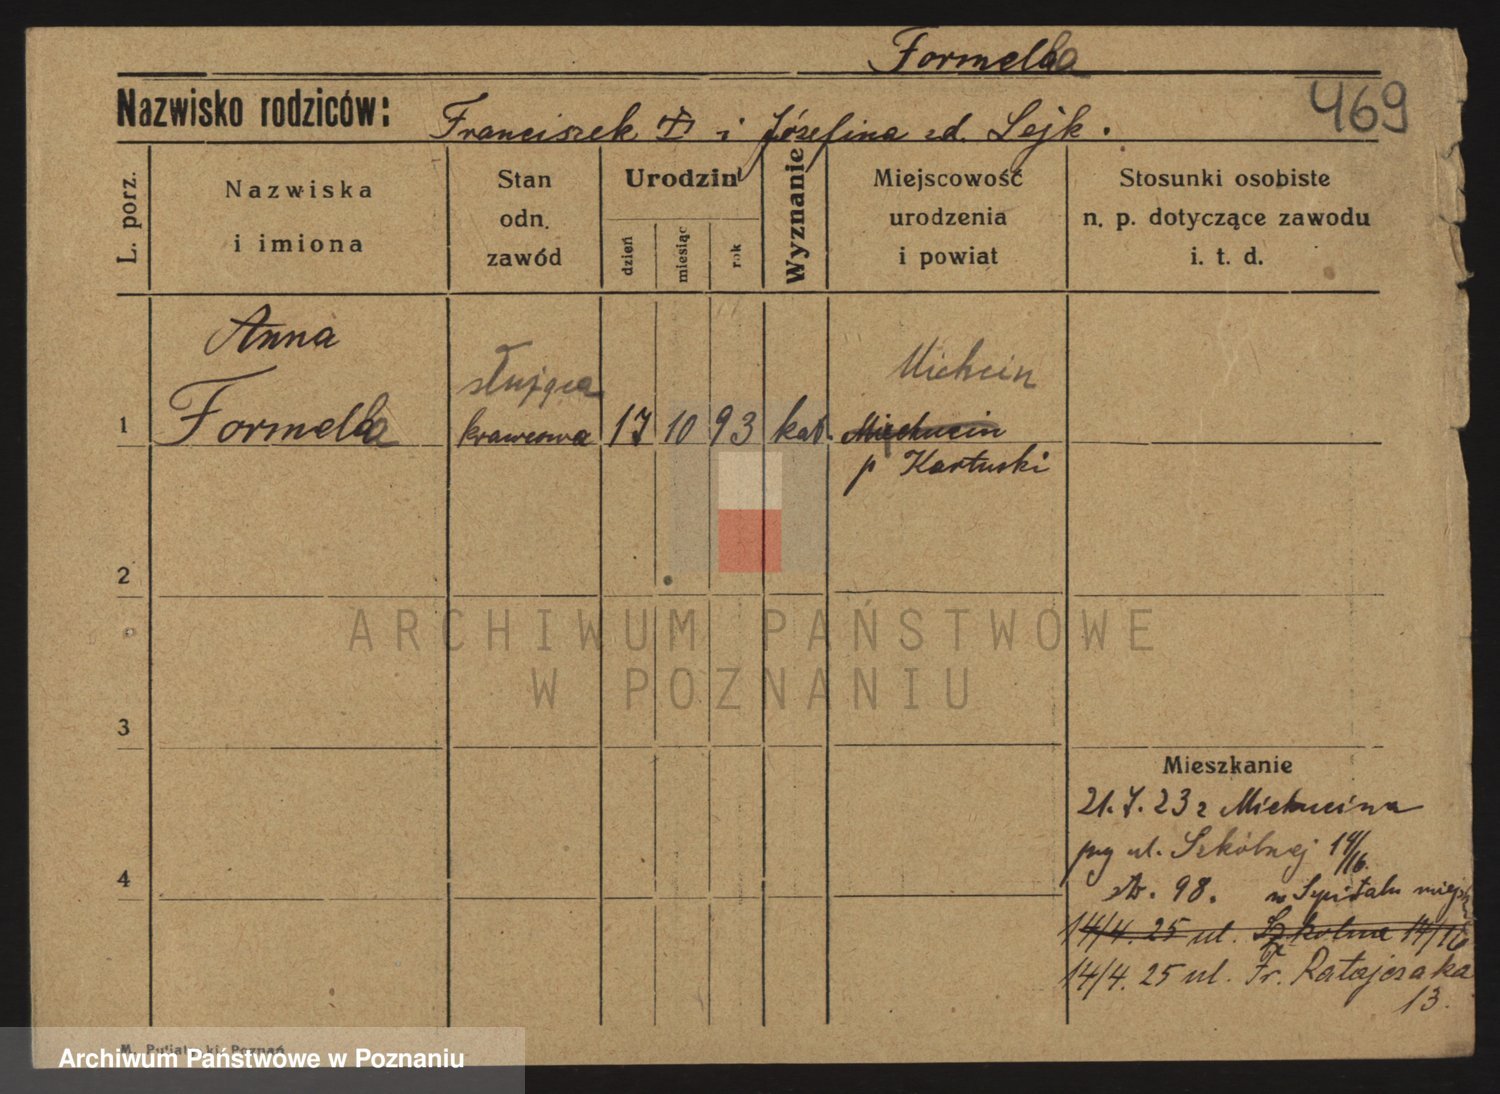 Formella
469
Nazwisko rodziców:
Franciszek i Józefina zd. Lejk.
L. porz.
Nazwiska
i imiona
Stan
odn.
zawód
Urodzin
dzień
miesiąc
rok
Wyznanie
Miejscowość
urodzenia
i powiat
Stosunki osobiste
n. p. dotyczące zawodu
i. t. d.
Anna
służąca
Miehcin
1
Formella
krawcowa
17
10
93
kat.
Miechucin
p Kartuski
2
ARCHIWUM PAŃSTWOWE
W POZNANIU
3
Mieszkanie
21.7.23 z Miechucina
ul. Szkólnej 14/16.
4
98. w Szpitalu
14/4. 25 ul. Szkolna 14/16
14/4. 25 ul. Fr. Ratajczaka
13.
Archiwum Państwowe w Poznaniu